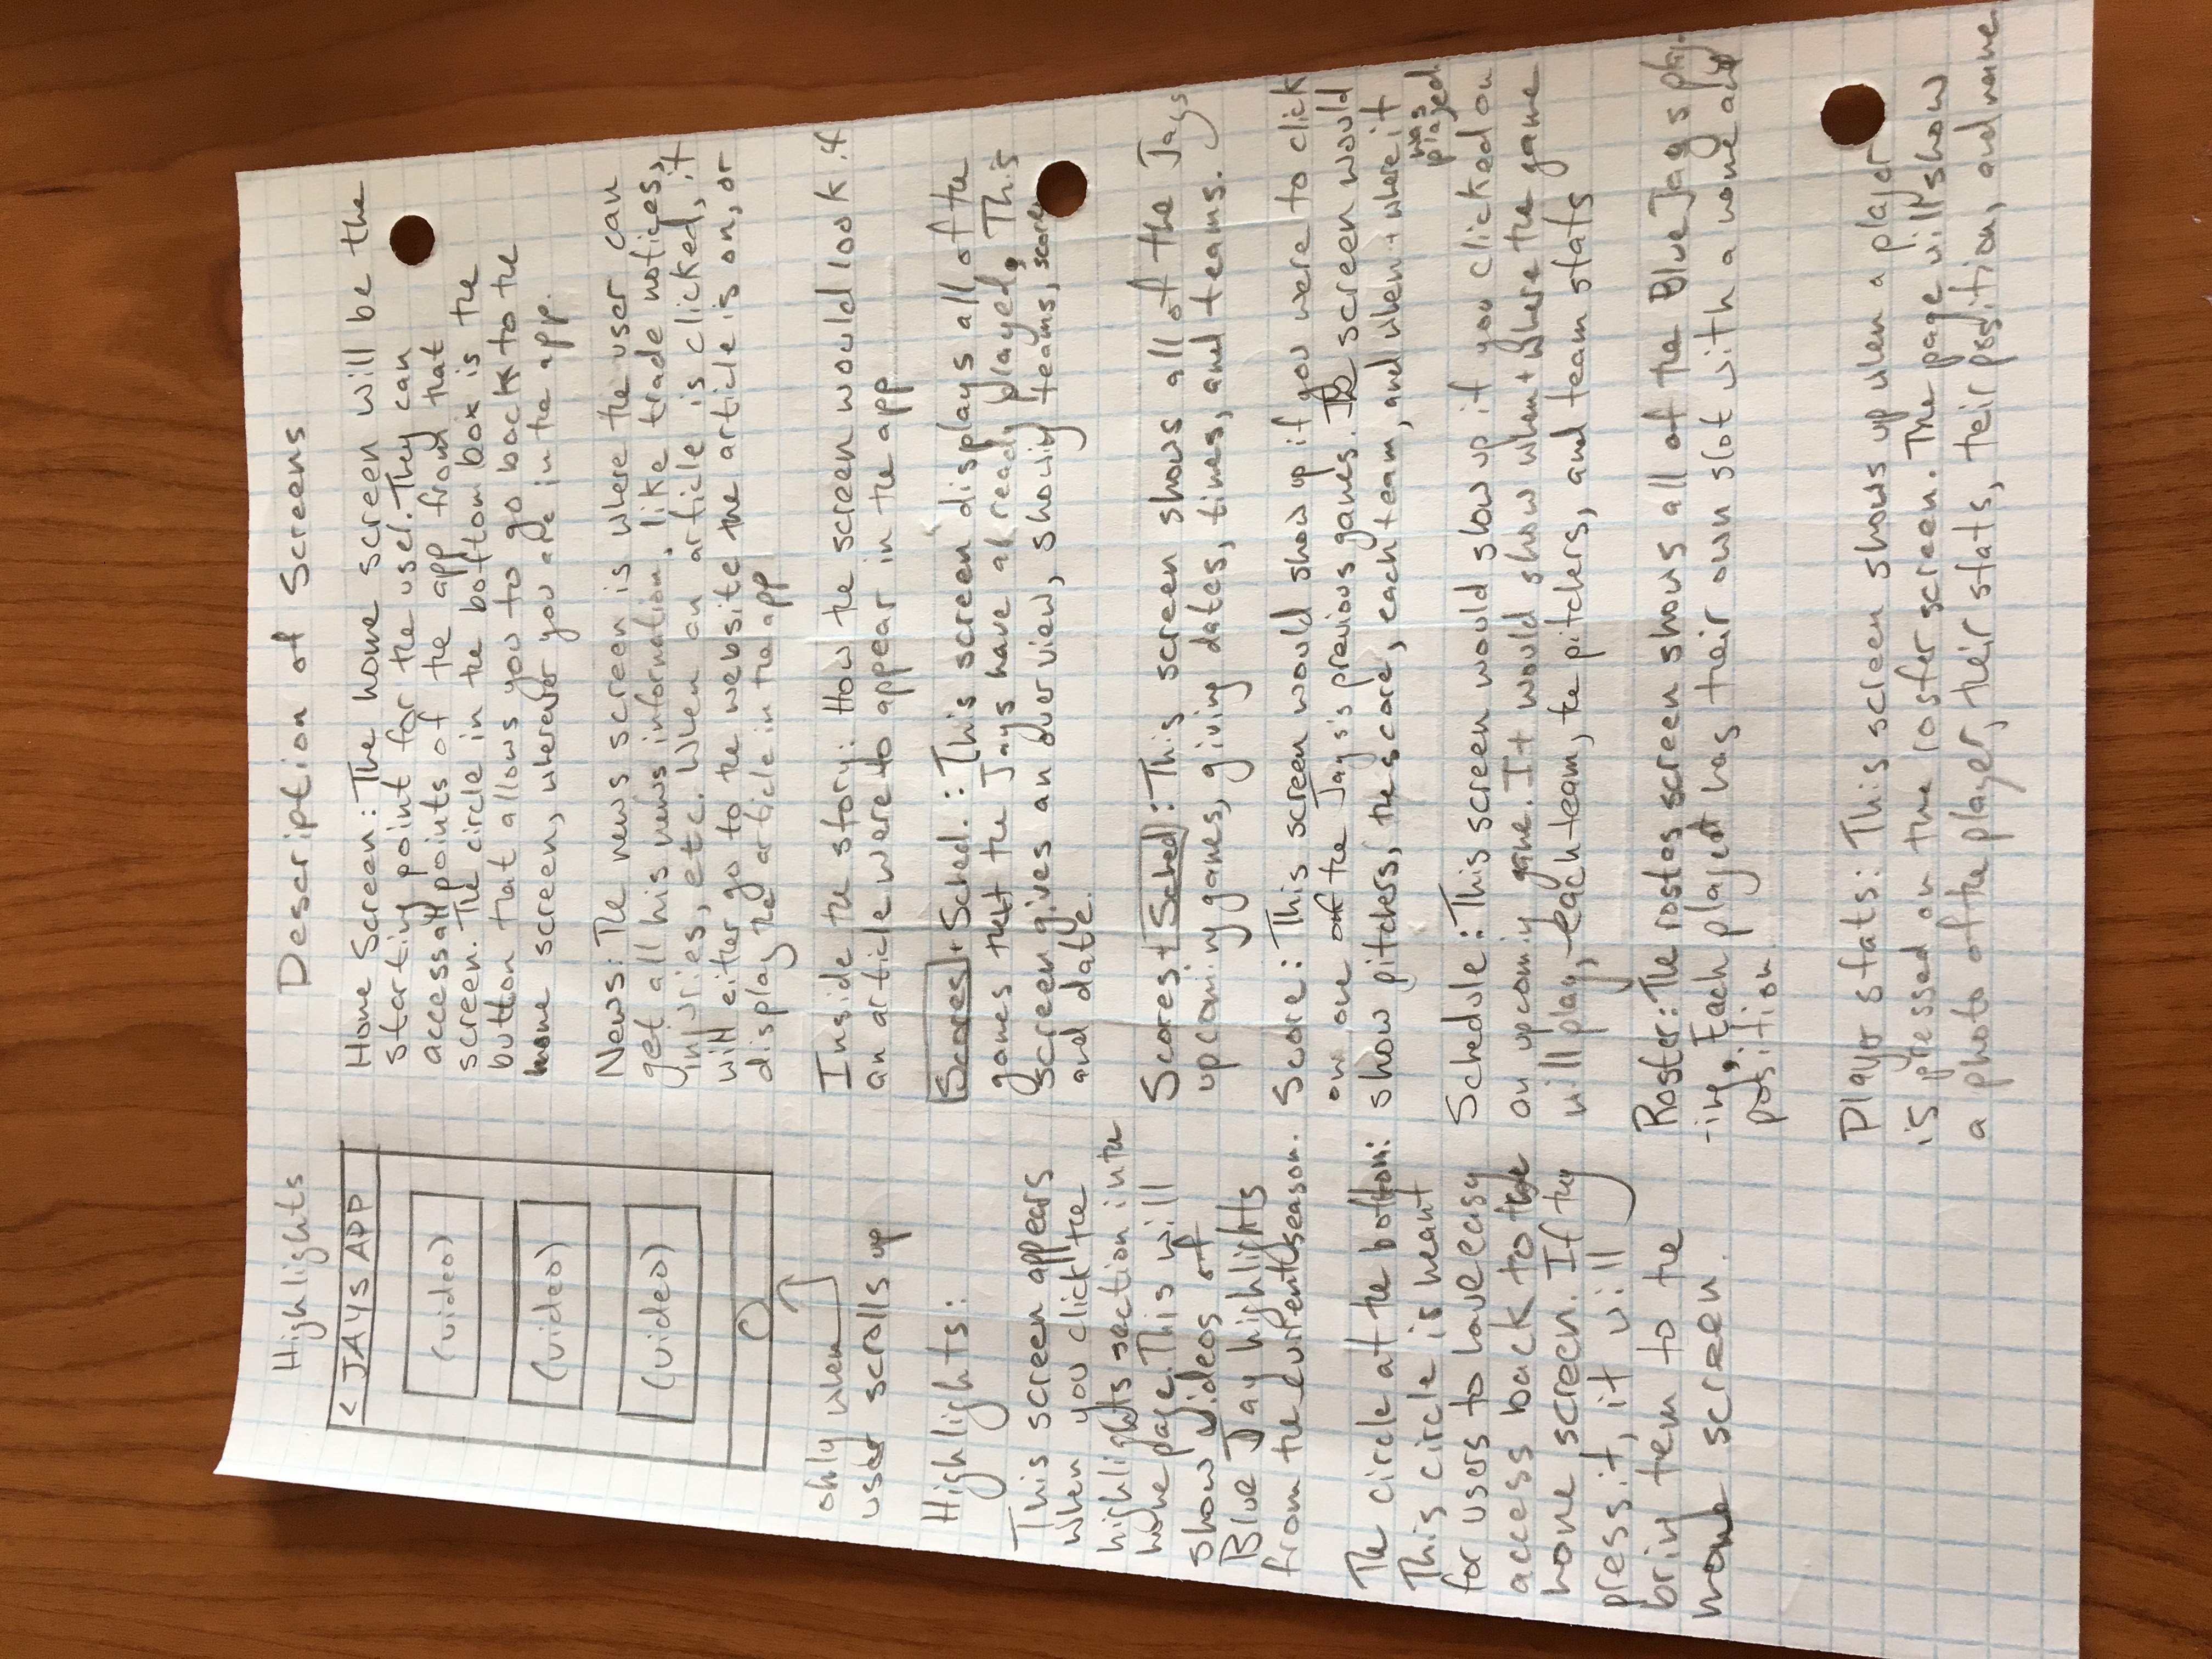 Highlights
< JAYS APP
(video)
(video)
(video)
only when
user scrolls up
Highlights:
This screen appears
when you click the
highlights section in the
home page. This will
show videos of
Blue Jay highlights
from the current season.
The circle at the bottom:
This circle is meant
for users to have easy
access back to the
home screen. If they
press it, it will
bring tem to the
home screen.
Description of Screens
Home Screen: The home screen will be the
starting point for the user. They can
access all points of the app from that
screen. The circle in the bottom box is the
button that allows you to go back to the
home screen, wherever you are in the app.
News: The news screen is where the user can
get all his news information, like trade notices,
injuries, etc. When an article is clicked, it
will either go to the website the article is on, or
display the article in the app
Inside the story: How the screen would look if
an article were to appear in the app
Scores + Sched. : This screen displays all of the
games that the Jays have already played. This
screen gives an overview, showing teams, score,
and date.
Scores + Sched : This screen shows all of the Jays
upcoming games, giving dates, times, and teams.
Score: This screen would show up if you were to click
on one of the Jays's previous games. The screen would
show pitchers, the score, each team, and when + where it
was
played.
Schedule: This screen would show up if you clicked on
an upcoming game. It would show when + where the game
will play, each team, the pitchers, and team stats
Roster: The roster screen shows all of the Blue Jays play-
-ing. Each player has their own slot with a name and
position.
Player stats: This screen shows up when a player
is pressed on the roster screen. The page will show
a photo of the player, their stats, teir position, and name